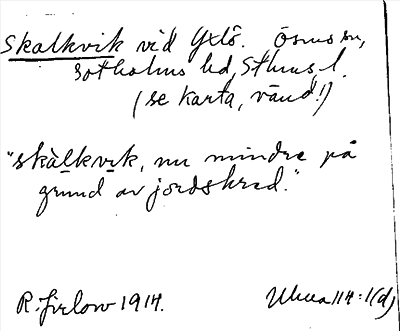 Skalkvik vid Yxlö. Ösmo sn,
Sotholms hd, Sthms l.
(se karta, vänd!)
"skàlkvik, nu mindre på
grund av jordskred."
R. Jirlow 1914.
114:1(d)